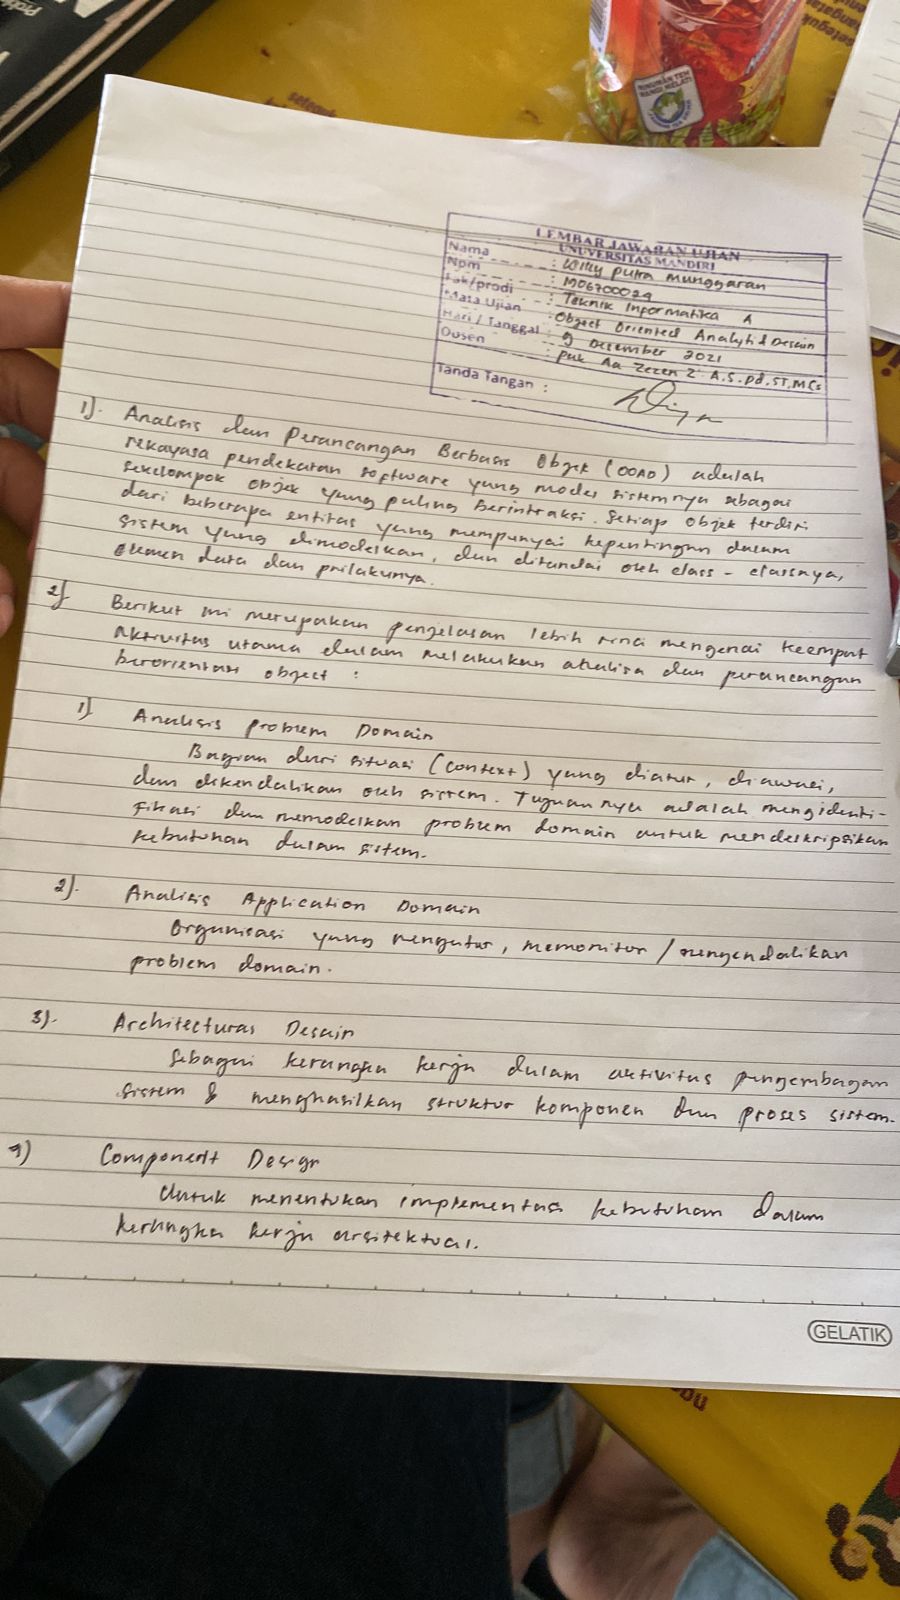 LEMBAR JAWABAN UJIAN
UNUVERSITAS MANDIRI
Nama : Willy putra munggaran
Npm : M06700029
Fak/prodi : Teknik Informatika A
Mata Ujian : Object Oriented Analyti & Desain
Hari / Tanggal : 9 Desember 2021
Dosen : pak Aa Zezen Z. A.S.pd.ST,MCs
Tanda Tangan :
1). Analisis dan Perancangan Berbasis Objek (OOAD) adalah
rekayasa pendekatan software yang model sistemnya sbagai
sekelompok objek yang paling berintraksi. Setiap objek terdiri
dari beberapa entitas yang mempunyai kepentingan dalam
sistem yang dimodelkan, dan ditandai oleh class - classnya,
elemen data dan prilakunya.
2) Berikut ini merupakan penjelasan lebih rinci mengenai keempat
aktivitas utama dalam melakukan analisa dan perancangan
berorientasi object :
1) Analisis problem Domain
Bagian dari situasi (context) yang diatur, diawasi,
dan dikendalikan oleh sistem. Tujuan nya adalah mengidenti-
fikasi dan memodelkan problem domain untuk mendeskripsikan
kebutuhan dalam sistem.
2). Analisis Application Domain
Organisasi yang mengatur, memonitor / mengendalikan
problem domain.
3). Architecturas Desain
Sebagai kerangka kerja dalam aktivitas pengembagan
sistem & menghasilkan struktur komponen dan proses sistem.
4) Component Design
Untuk menentukan implementasi kebutuhan dalam
kerangka kerja arsitektual.
GELATIK